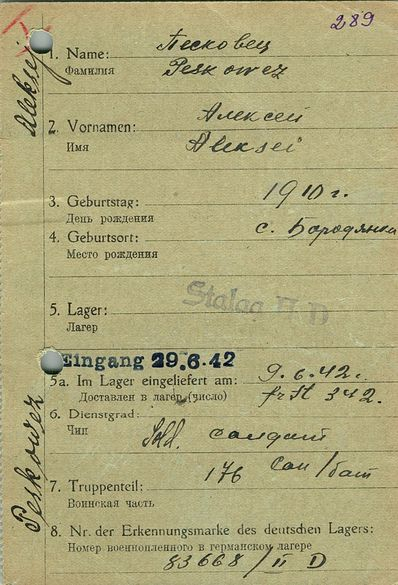 289
Aleksej
Песковец
1. Name: Peskowez
Фамилия
Алексей
2. Vornamen:
Имя Aleksei
3. Geburtstag: 1910 г.
День рождения
4. Geburtsort: с. Бородянка
Место рождения
Stalag II D
5. Lager:
Лагер
Eingang 29.6.42
5a. Im Lager eingeliefert am: 9.6.42.
Доставлен в лагер (число) 342.
6. Dienstgrad:
Чин Sold. солдат
176 сап/бат
7. Truppenteil:
Воинская часть
8. Nr. der Erkennungsmarke des deutschen Lagers:
Номер военнопленного в германском лагере
83668/II D
Peskowez